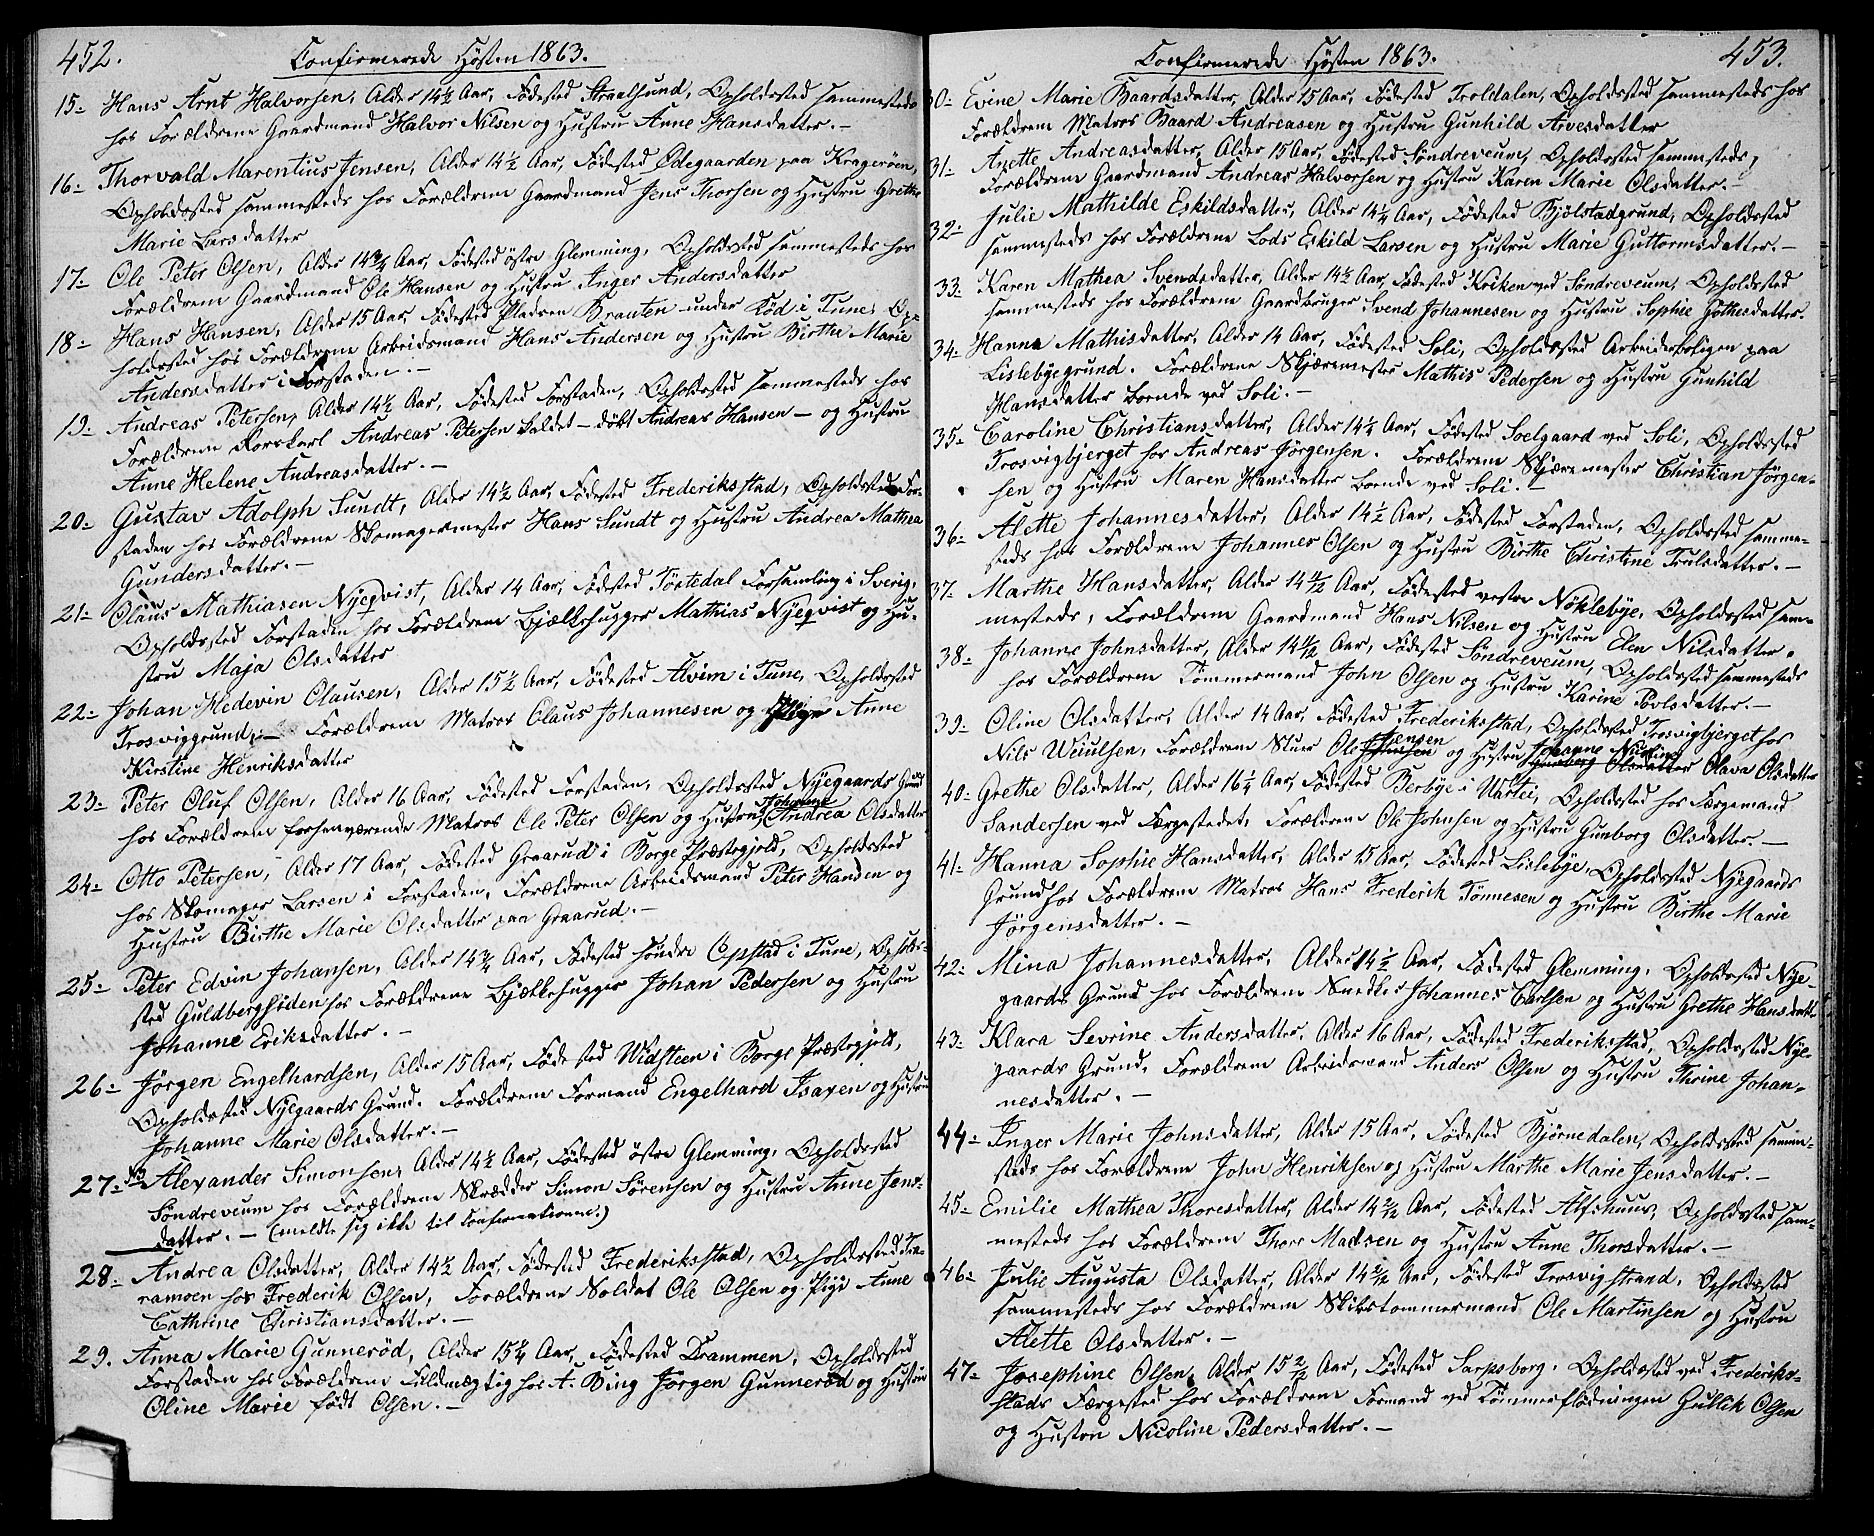 452.
Confirmerede Høsten 1863.
15- Hans Arnt Halvorsen, Alder 14½ Aar, Fødested Straalsund, Opholdssted sammesteds
hos Forældrene Gaardmand Halvor Nilsen og Hustru Anne Hansdatter.-
16- Thorvald Marentius Jensen, Alder 14½ Aar, Fødested Ødegaarden paa Kragerøen,
Opholdssted sammesteds hos Forældrene Gaardmand Jens Thorsen og Hustru Grethe
Marie Larsdatter
17- Ole Peter Olsen, Alder 14¾ Aar, Fødested østre Glemming, Opholdssted sammesteds hos
Forældrene Gaardmand Ole Hansen og Hustru Inger Andersdatter
18- Hans Hansen, Alder 15 Aar, Fødested Pladsen Braaten under Rød i Tune, Op-
holdssted hos Forældrene Arbeidsmand Hans Andersen og Hustru Birthe Marie
Andersdatter i Forstaden.-
19- Andreas Petersen, Alder 14½ Aar, Fødested Forstaden, Opholdssted sammesteds hos
Forældrene Rorskarl Andreas Petersen kaldet - døbt Andreas Hansen - og Hustru
Anne Helene Andreasdatter.-
20- Gustav Adolph Sundt, Alder 14½ Aar, Fødested Frederiksstad, Opholdssted For-
staden hos Forældrene Skomagermester Hans Sundt og Hustru Andrea Mathea
Gundersdatter.-
21- Olaus Mathiasen Nyeqvist, Alder 14 Aar, Fødested Töstedal Forsamling i Sverig,
Opholdssted Forstaden hos Forældrene Bjælkehugger Mathias Nyeqvist og Hu-
stru Maja Olsdatter
22- Johan Hedevin Clausen, Alder 15½ Aar, Fødested Alvim i Tune, Opholdssted
Trosviggrund.- Forældrene Matros Claus Johannesen og Pige Anne
Kirstine Henriksdatter
23- Peter Oluf Olsen, Alder 16 Aar, Fødested Forstaden, Opholdssted Nyegaards Grund
hos Forældrene forhenværende Matros Ole Peter Olsen og Hustru Johanne Andrea Olsdatter
24- Otto Petersen, Alder 17 Aar, Fødested Graarud i Borge Præstegjeld, Opholdssted
hos Skomager Larsen i Forstaden, Forældrene Arbeidsmand Peter Hansen og
Hustru Birthe Marie Olsdatter paa Graarud.-
25- Peter Edvin Johansen, Alder 14¾ Aar, Fødested søndre Opstad i Tune, Opholds-
sted Guldbergsiden hos Forældrene Bjælkehugger Johan Pedersen og Hustru
Johanne Eriksdatter.-
26- Jørgen Engelhardsen, Alder 15 Aar, Fødested Widsteen i Borge Præstegjeld,
Opholdssted Nyegaards Grund. Forældrene Formand Engelhard Isaxen og Hustru
Johanne Marie Olsdatter.-
27- Alexander Simonsen, Alder 14½ Aar, Fødested østre Glemming, Opholdssted
Søndreveum hos Forældrene Skrædder Simon Sørensen og Hustru Anne Jens-
datter.- (meldte sig ikke til Confirmationen.)
28- Andrea Olsdatter, Alder 14½ Aar, Fødested Frederiksstad, Opholdssted
ramoen hos Frederik Olsen, Forældrene Soldat Ole Olsen og Pige Anne
Cathrine Christiansdatter.-
29. Anna Marie Gunnerød, Alder 15¼ Aar, Fødested Drammen, Opholdssted
Forstaden hos Forældrene Fuldmægtig hos A. Bing Jørgen Gunnerød og Hustru
Oline Marie født Olsen.-
453.
Confirmerede Høsten 1863.
30- Evine Marie Baardsdatter, Alder 15 Aar, Fødested Troldalen, Opholdssted sammesteds hos
Forældrene Matros Baard Andreasen og Hustru Gunhild Arvesdatter
31- Anette Andreasdatter, Alder 15 Aar, Fødested Søndreveum, Opholdssted sammesteds,
Forældrene Gaardmand Andreas Halvorsen og Hustru Karen Marie Olsdatter.-
32- Julie Mathilde Eskildsdatter, Alder 14¼ Aar, Fødested Bjølstadgrund, Opholdssted
sammesteds hos Forældrene Lods Eskild Larsen og Hustru Marie Guttormsdatter.-
33- Karen Mathea Svendsdatter, Alder 14½ Aar, Fødested Kriken ved Søndreveum, Opholdssted
sammesteds hos Forældrene Gaardbruger Svend Johannesen og Hustru Sophie Gothesdatter.
34- Hanna Mathisdatter, Alder 14 Aar, Fødested Soli, Opholdssted Arbeiderboligen paa
Lislebyegrund. Forældrene Skjæremester Mathis Pedersen og Hustru Gunhild
Hansdatter boende ved Soli.-
35- Caroline Christiansdatter, Alder 14¼ Aar, Fødested Soelgaard ved Soli, Opholdssted
Trosvigbjerget hos Andreas Jørgensen. Forældrene Skjæremester Christian Jørgen-
sen og Hustru Maren Hansdatter boende ved Soli.-
36- Alette Johannesdatter, Alder 14½ Aar, Fødested Forstaden, Opholdssted samme-
steds hos Forældrene Johannes Olsen og Hustru Birthe Christine Trulsdatter.-
37- Marthe Hansdatter, Alder 14 Aar, Fødested vestre Nøklebye, Opholdssted sam-
mesteds, Forældrene Gaardmand Hans Nilsen og Hustru Elen Nilsdatter.
38- Johanne Johnsdatter, Alder 14 Aar, Fødested Søndreveum, Opholdssted sammesteds
hos Forældrene Tømmermand John Olsen og Hustru Karine Povlsdatter.-
39- Oline Olsdatter, Alder 14 Aar, Fødested Frederiksstad, Opholdssted Trosvigbjerget hos
Nils Weiulsen, Forældrene Stuer Ole Jensen og Hustru Johanne Nicoline Gunborg Olsdatter Olava Olsdatter
40- Grethe Olsdatter, Alder 16¼ Aar, Fødested Berbye i Uxtei, Opholdssted hos Færgemand
Sandersen ved Færgestedet, Forældrene Ole Johnsen og Hustru Gunborg Olsdatter.-
41- Hanna Sophie Hansdatter, Alder 15 Aar, Fødested Lislebye, Opholdssted Nyegaards
Grund hos Forældrene Matros Hans Frederik Tønnesen og Hustru Birthe Marie
Jørgensdatter.-
42- Mina Johannesdatter, Alder 14½ Aar, Fødested Glemming, Opholdssted Nye-
gaards Grund hos Forældrene Snedker Johannes Carlsen og Hustru Grethe Hansdatter
43- Klara Sevrine Andersdatter, Alder 16 Aar, Fødested Frederiksstad, Opholdssted Nye-
gaards Grund, Forældrene Arbeidsmand Anders Olsen og Hustru Thrine Johan-
nesdatter.-
44- Inger Marie Johnsdatter, Alder 15 Aar, Fødested Bjørnedalen, Opholdssted samme-
steds hos Forældrene John Henriksen og Hustru Marthe Marie Jensdatter.-
45- Emilie Mathea Thoresdatter, Alder 14 Aar, Fødested Alfshuus, Opholdssted sam-
mesteds hos Forældrene Thore Madsen og Hustru Anne Thorsdatter.-
46- Julie Augusta Olsdatter, Alder 14 Aar, Fødested Trosvigstrand, Opholdssted
sammesteds hos Forældrene Skibstømmermand Ole Martinsen og Hustru
Alette Olsdatter.-
47- Josephine Olsen, Alder 15 Aar, Fødested Sarpsborg, Opholdssted ved Frederiks-
stads Færgested hos Forældrene Formand ved Tømmerflødningen Gullik Olsen
og Hustru Nicoline Pedersdatter.-